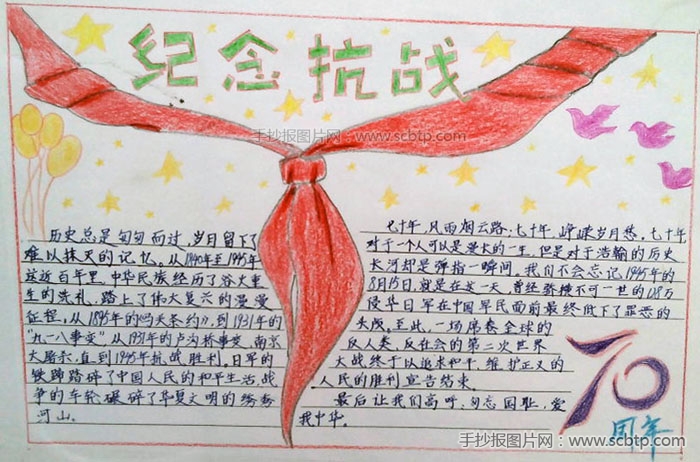 纪念抗战
手抄报图片网:www.scbtp.com
历史总是匆匆而过,岁月留下了
难以抹灭的记忆。从1840年至1945年
这近百年里,中华民族经历了浴火重
生的洗礼,踏上了伟大复兴的漫漫
征程,从1895年的《马关条约》,到1931年的
“九一八事变”从1937年的卢沟桥事变、南京
大屠杀,直到1945年抗战胜利。日军的
铁蹄踏碎了中国人民的和平生活,战
争的车轮碾碎了华夏文明的锦秀
河山。
七十年,风雨烟云路,七十年,峥嵘岁月愁。七十年
对于一个人可以是漫长的一生,但是对于浩翰的历史
长河却是弹指一瞬间。我们不会忘记1945年的
8月15日,就是在这一天,曾经骄横不可一世的128万
侵华日军在中国军民面前最终低下了罪恶的
头颅。至此,一场席卷全球的
反人类、反社会的第二次世界
大战终于以追求和平、维护正义的
人民的胜利宣告结束。
最后让我们高呼,勿忘国耻,爱
我中华。
70
周年
手抄报图片网:www.scbtp.com